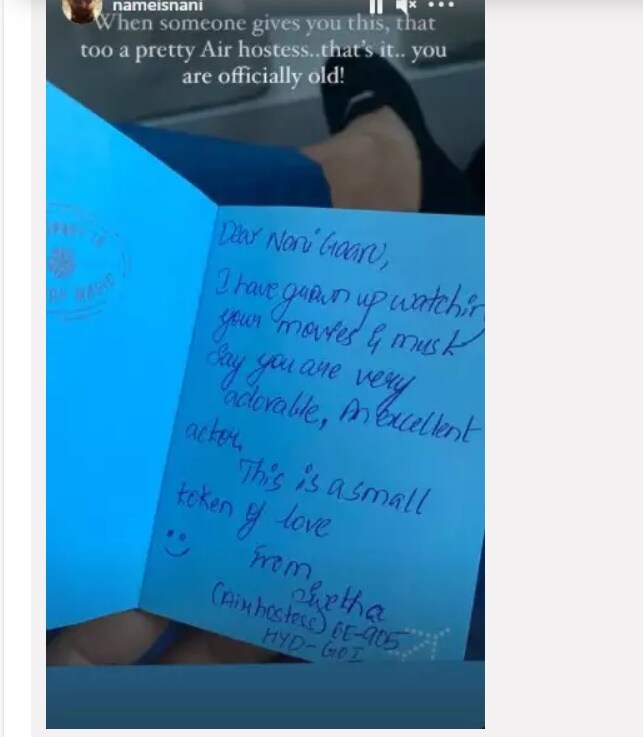 nameisnani
When someone gives you this, that
too a pretty Air hostess..that's it.. you
are officially old!
Dear Nani Gaaru,
I have grown up watchin
your movies & must
Say you are very
adorable, An excellent
actor,
This is a small
token of love
From
Swetha
(Airhostess) 6E-905
HYD-GOI
MAGIC